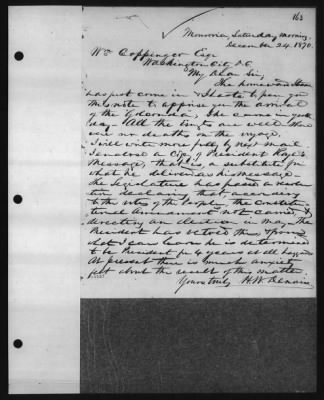 163
Monrovia, Saturday morning,
December 24, 1870.
Wm Coppinger Esqr
Washington City, D.C.
My Dear Sir,
The homeward Steamer
has just come in & I hasten to pen you
this note to apprise you the arrival
of the Golconda. She came in yester
day. All the Emigts are well. There
were no deaths on the voyage.
I will write more fully by next mail
I enclose a Copy of President Roye's
Message, that is a substitute for
what he delivered as his message
The legislature has passed a resolu
tion declaring that according
to the votes of the People, the Constitu
tional Amendment "not carried" &
directing an election in May. The
President has vetoed this, & from
what I can learn he is determined
to be President for 4 years at all hazzards
At present there is much anxiety
felt about the result of this matter.
Yours truly H. W. Dennis